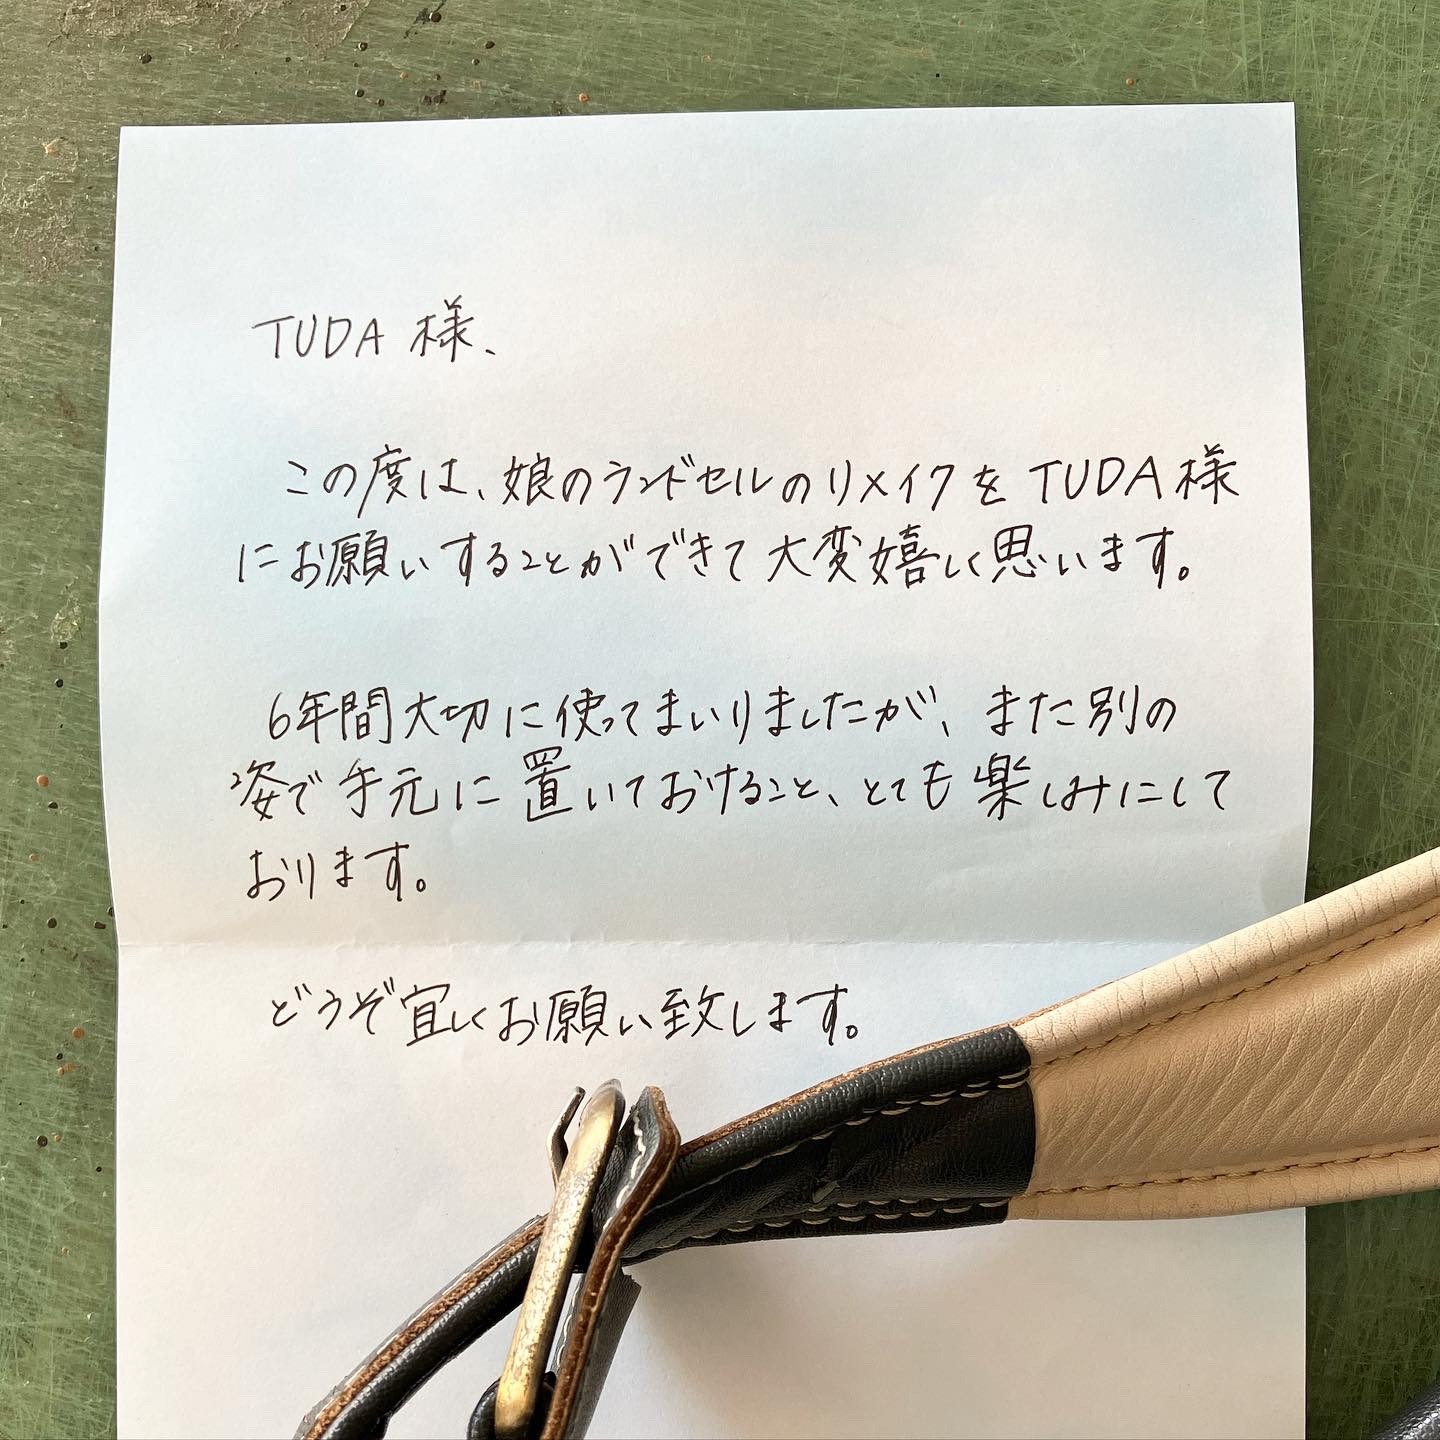 TUDA 様、
この度は、娘のランドセルのリメイクを TUDA 様
にお願いすることができて大変嬉しく思います。
6年間大切に使ってまいりましたが、また別の
姿で手元に置いておけること、とても楽しみにして
おります。
どうぞ宜しくお願い致します。